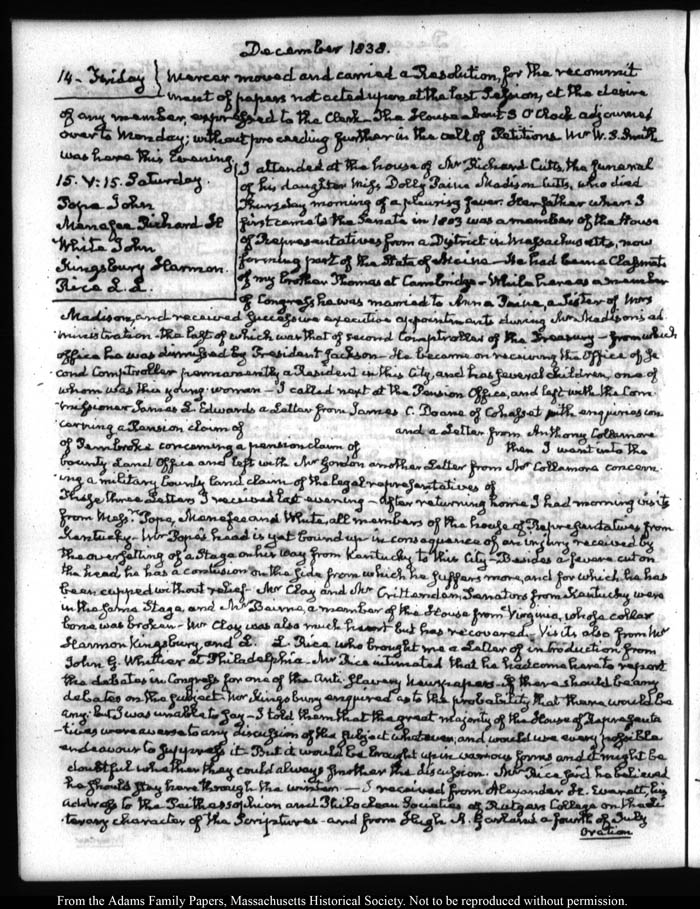 December 1838.
14 - Friday { Mercer moved and carried a Resolution, for the recommit
ment of papers not acted upon at the last Session, at the desire
of any member, expressed to the Clerk - The House about 3 O'Clock adjourned
over to Monday; without proceeding further in the call of Petitions Mr W. S. Smith
was here this Evening.
15. V:15. Saturday.
Pope John
Menefee Richard H
White John
Kingsbury Harmon.
Rice L. L.
I attended at the house of Mr Richard Cutts, the funeral
of his daughter Miss Dolly Paine Madison Cutts, who died
Thursday morning of a pleurisy fever. Her father when I
first came to the Senate in 1803 was a member of the House
of Representatives from a District in Massachusetts, now
forming part of the State of Maine - He had been a Classmate
of my brother Thomas at Cambridge - While here as a member
of Congress he was married to Anna Paine, a Sister of Mrs
Madison, and received successive executive appointments during Mr Madison's ad
ministration - the last of which was that of Second Comptroller of the Treasury - from which
office he was dismissed by President Jackson - He became on receiving the Office of Se
cond Comptroller permanently a Resident in this City, and has several children, one of
whom was this young woman - I called next at the Pension Office, and left with the Com
missioner James L. Edwards a Letter from James C. Doane of Cohasset with enquiries con
cerning a Pension claim of and a Letter from Anthony Collamore
of Pembroke concerning a pension claim of then I went into the
bounty Land Office and left with Mr Gordon another Letter from Mr Collamore concern
ing a military bounty land claim of the legal representatives of
These three Letters I received last evening - After returning home I had morning visits
from Messrs Pope, Menefee and White, all members of the house of Representatives from
Kentucky. Mr Pope's head is yet bound up in consequence of an injury received by
the oversetting of a Stage on his way from Kentucky to this City - Besides a severe cut on
the head he has a contusion on the side from which he suffers more, and for which he has
been cupped without relief - Mr Clay and Mr Crittenden, Senators from Kentucky were
in the same Stage, and Mr Beirne, a member of the House from Virginia, whose collar
bone was broken - Mr Clay was also much hurt but has recovered. Visits also from Mr
Harmon Kingsbury, and L. L. Rice who brought me a Letter of introduction from
John G. Whittier at Philadelphia. Mr Rice intimated that he had come here to report
the debates in Congress for one of the Anti-Slavery Newspapers - If there should be any
debates on the subject. Mr Kingsbury enquired as to the probability that there would be
any. but I was unable to say - I told them that the great majority of the House of Representa
tives were averse to any discussion of the subject whatever, and would use every possible
endeavour to suppress it. But it would be brought up in various forms and it might be
doubtful whether they could always smother the discussion. Mr Rice said he believed
he should stay here through the winter - I received from Alexander H. Everett, his
Address to the Peithessophian and Philoclean Societies of Rutgers College on the li
terary character of the Scriptures - and from Hugh A. Garland a fourth of July
Oration
From the Adams Family Papers, Massachusetts Historical Society. Not to be reproduced without permission.